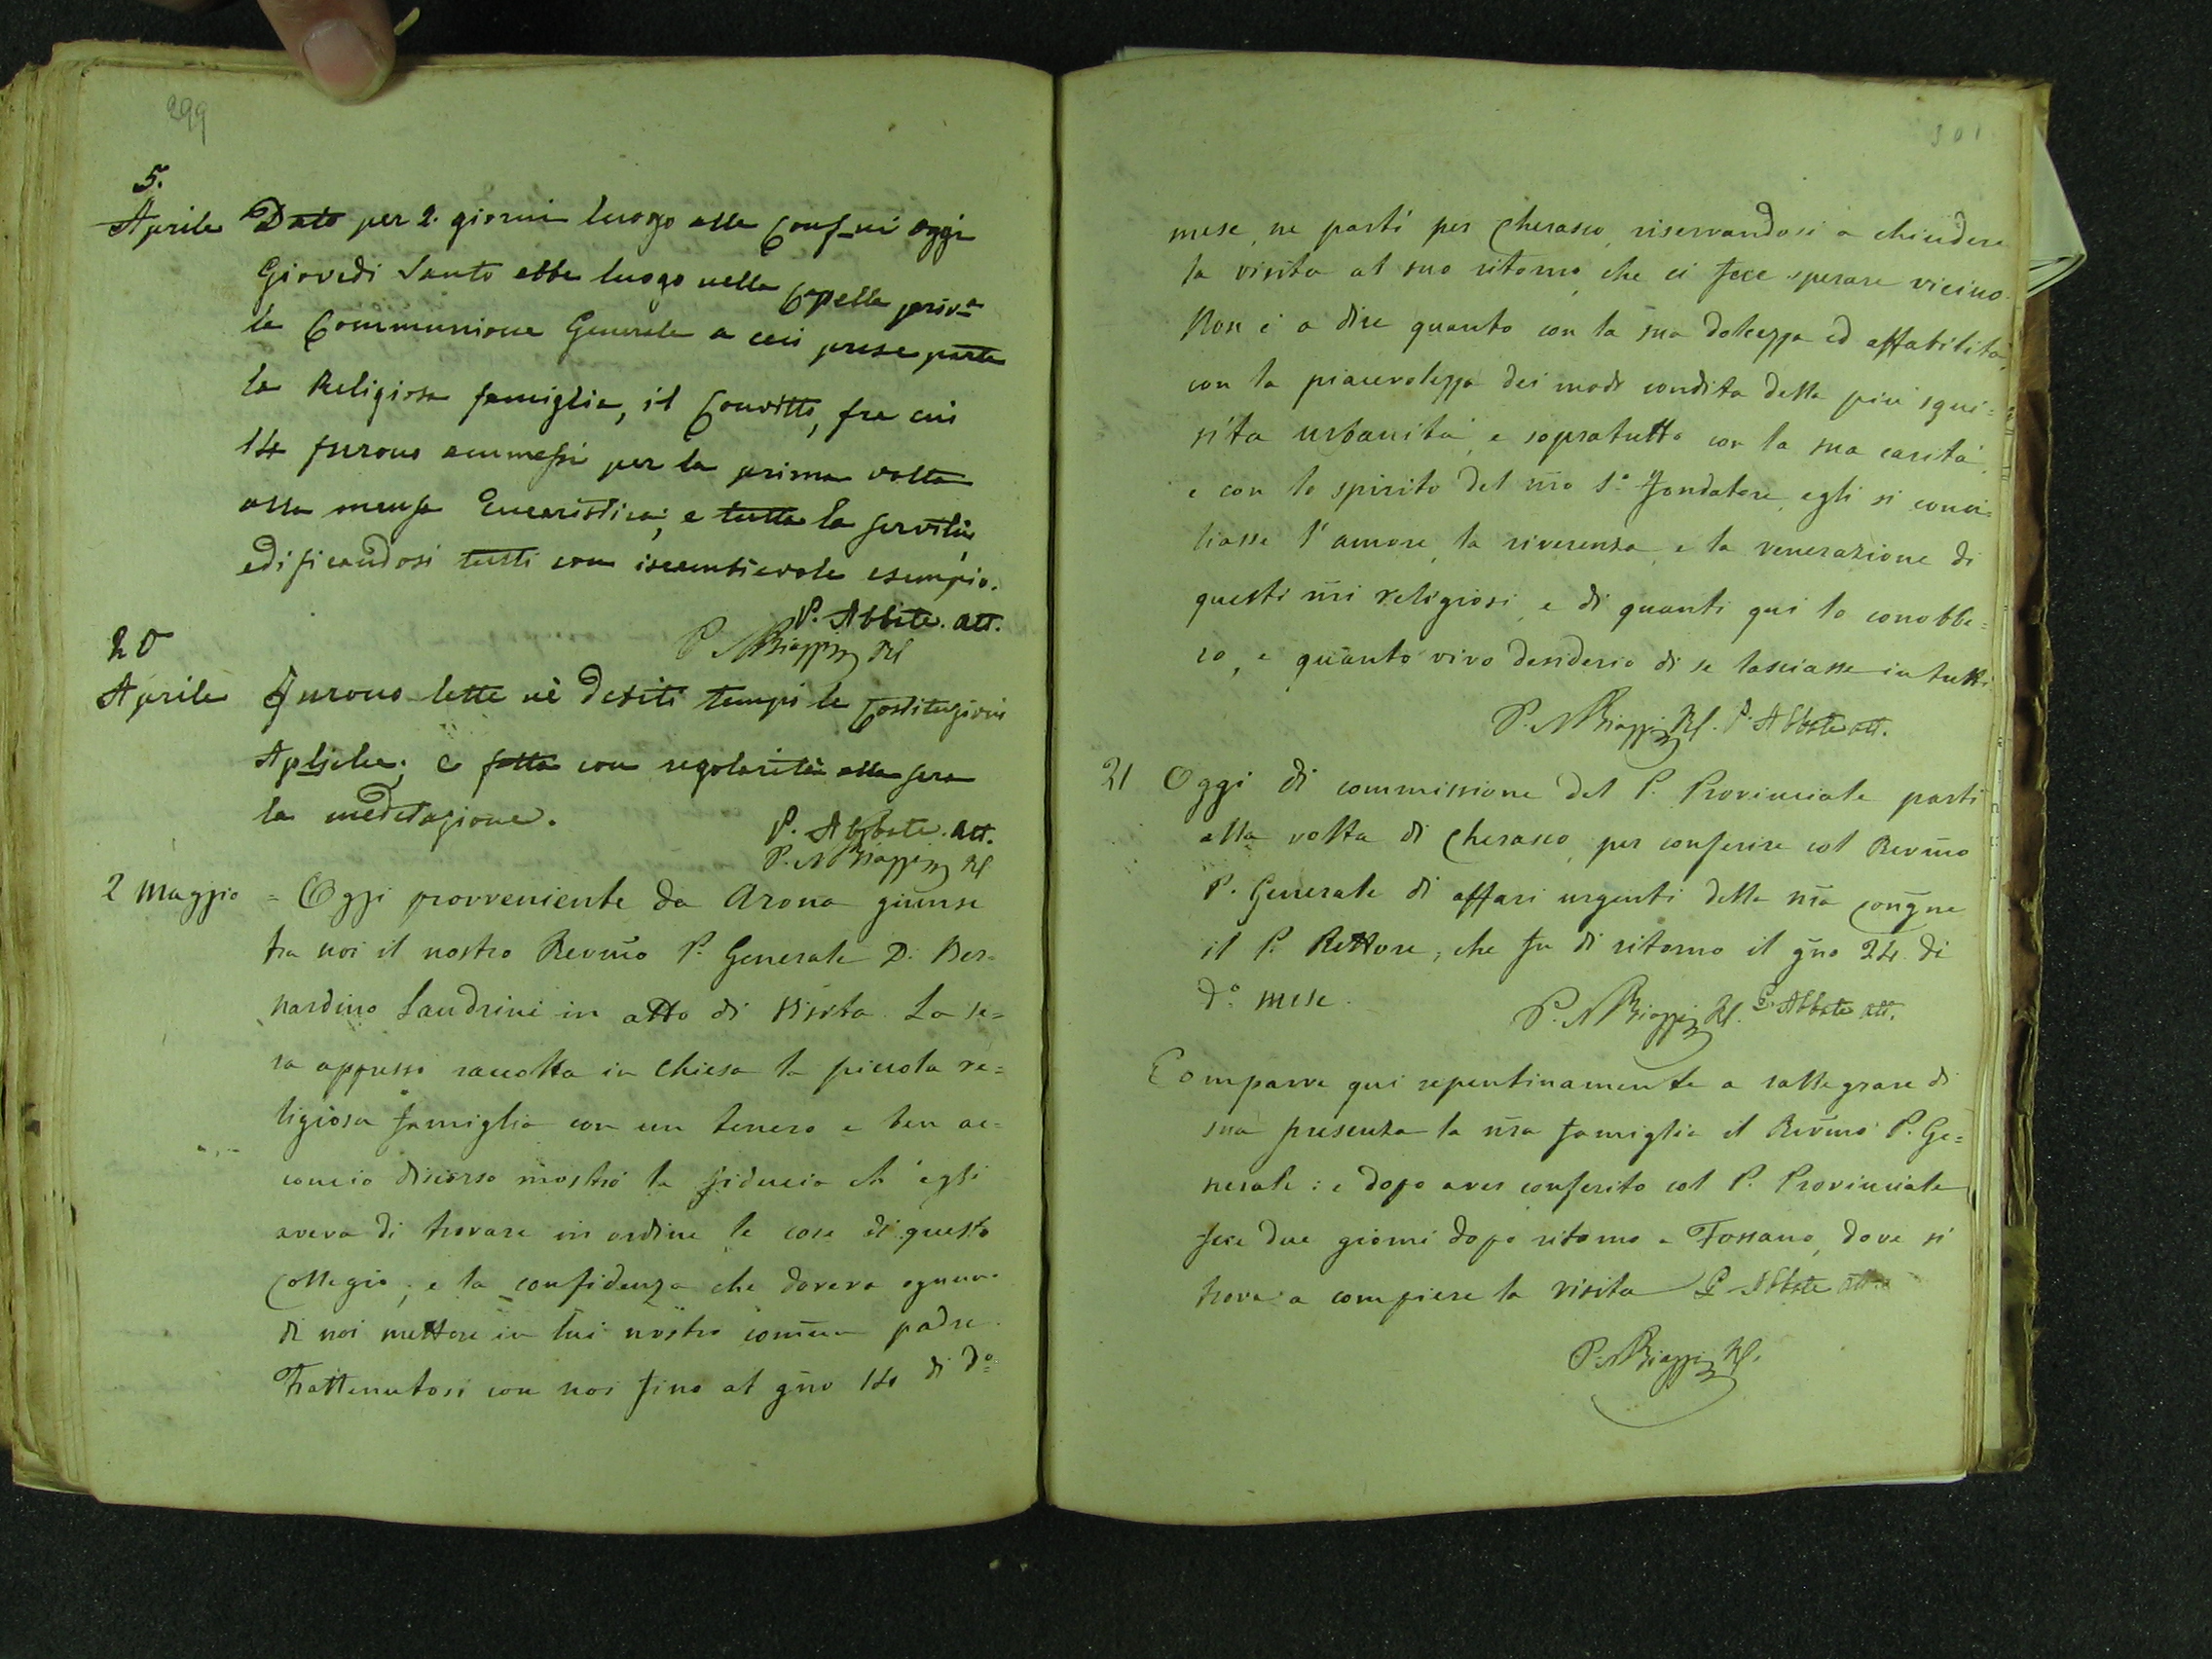 299
5.
Aprile Dato per 2. giorni luogo alle Conf_ni oggi
Giovedi Santo ebbe luogo nella Capella priv.a
la Communione Generale a cui prese parte
la Religiosa famiglia, il Convitto, fra cui
14 furono ammessi per la prima volta
alla mensa Eucaristica; e tutta la servitù,
edificandosi tutti con iscambievole esempio.
P. Abbate. att.
P. N Biaggi Rel
20
Aprile Furono lette nè debiti tempi le Costituzioni
Apliche; e fatta con regolarità alla sera
la meditazione.
P. Abbate. att.
P. N Biaggi Rel
2 Maggio = Oggi provveniente da Arona giunse
tra noi il nostro Revm̃o P. Generale D. Ber=
nardino Sandrini in atto di Visita. La se=
ra appresso raccolta in Chiesa la piccola re=
ligiosa famiglia con un tenero e ben ac=
concio discorso mostrò la fiducia ch'egli
aveva di trovare in ordine le cose di questo
Collegio; e la confidenza che doveva ognuno
di noi mettere in lui nostro com̃un padre.
Trattenutosi con noi fino al gñno 14 di d.o
301
mese, ne partì per Cherasco, riservandosi a chiudere
la visita al suo ritorno, che ci fece sperare vicino.
Non è a dire quanto con la sua dolcezza ed affabilità,
con la piacevolezza dei modi condita della più squi=
sita urbanità, e sopratutto con la sua carità,
e con lo spirito del nr̃o S.o Fondatore, egli si conci=
liasse l'amore, la riverenza, e la venerazione di
questi nr̃i religiosi, e di quanti qui lo conobbe=
ro, e quanto vivo desiderio di se lasciasse in tutti.
P. N Biaggi Rel. P. Abbate att.
21 Oggi di commissione del P. Provinciale partì
alla volta di Cherasco, per conferire col Revm̃o
P. Generale di affari urgenti della nr̃a Congñe
il P. Rettore, che fu di ritorno il gñno 24. di
d.o mese.
P. N Biaggi Rel. P. Abbate att.
Comparve qui repentinamente a rallegrare di
sua presenza la nr̃a famiglia il Revm̃o P. Ge=
nerale: e dopo aver conferito col P. Provinciale
fece due giorni dopo ritorno a Fossano, dove si
trova a compiere la visita P. Abbate att.
P. N Biaggi Rel.